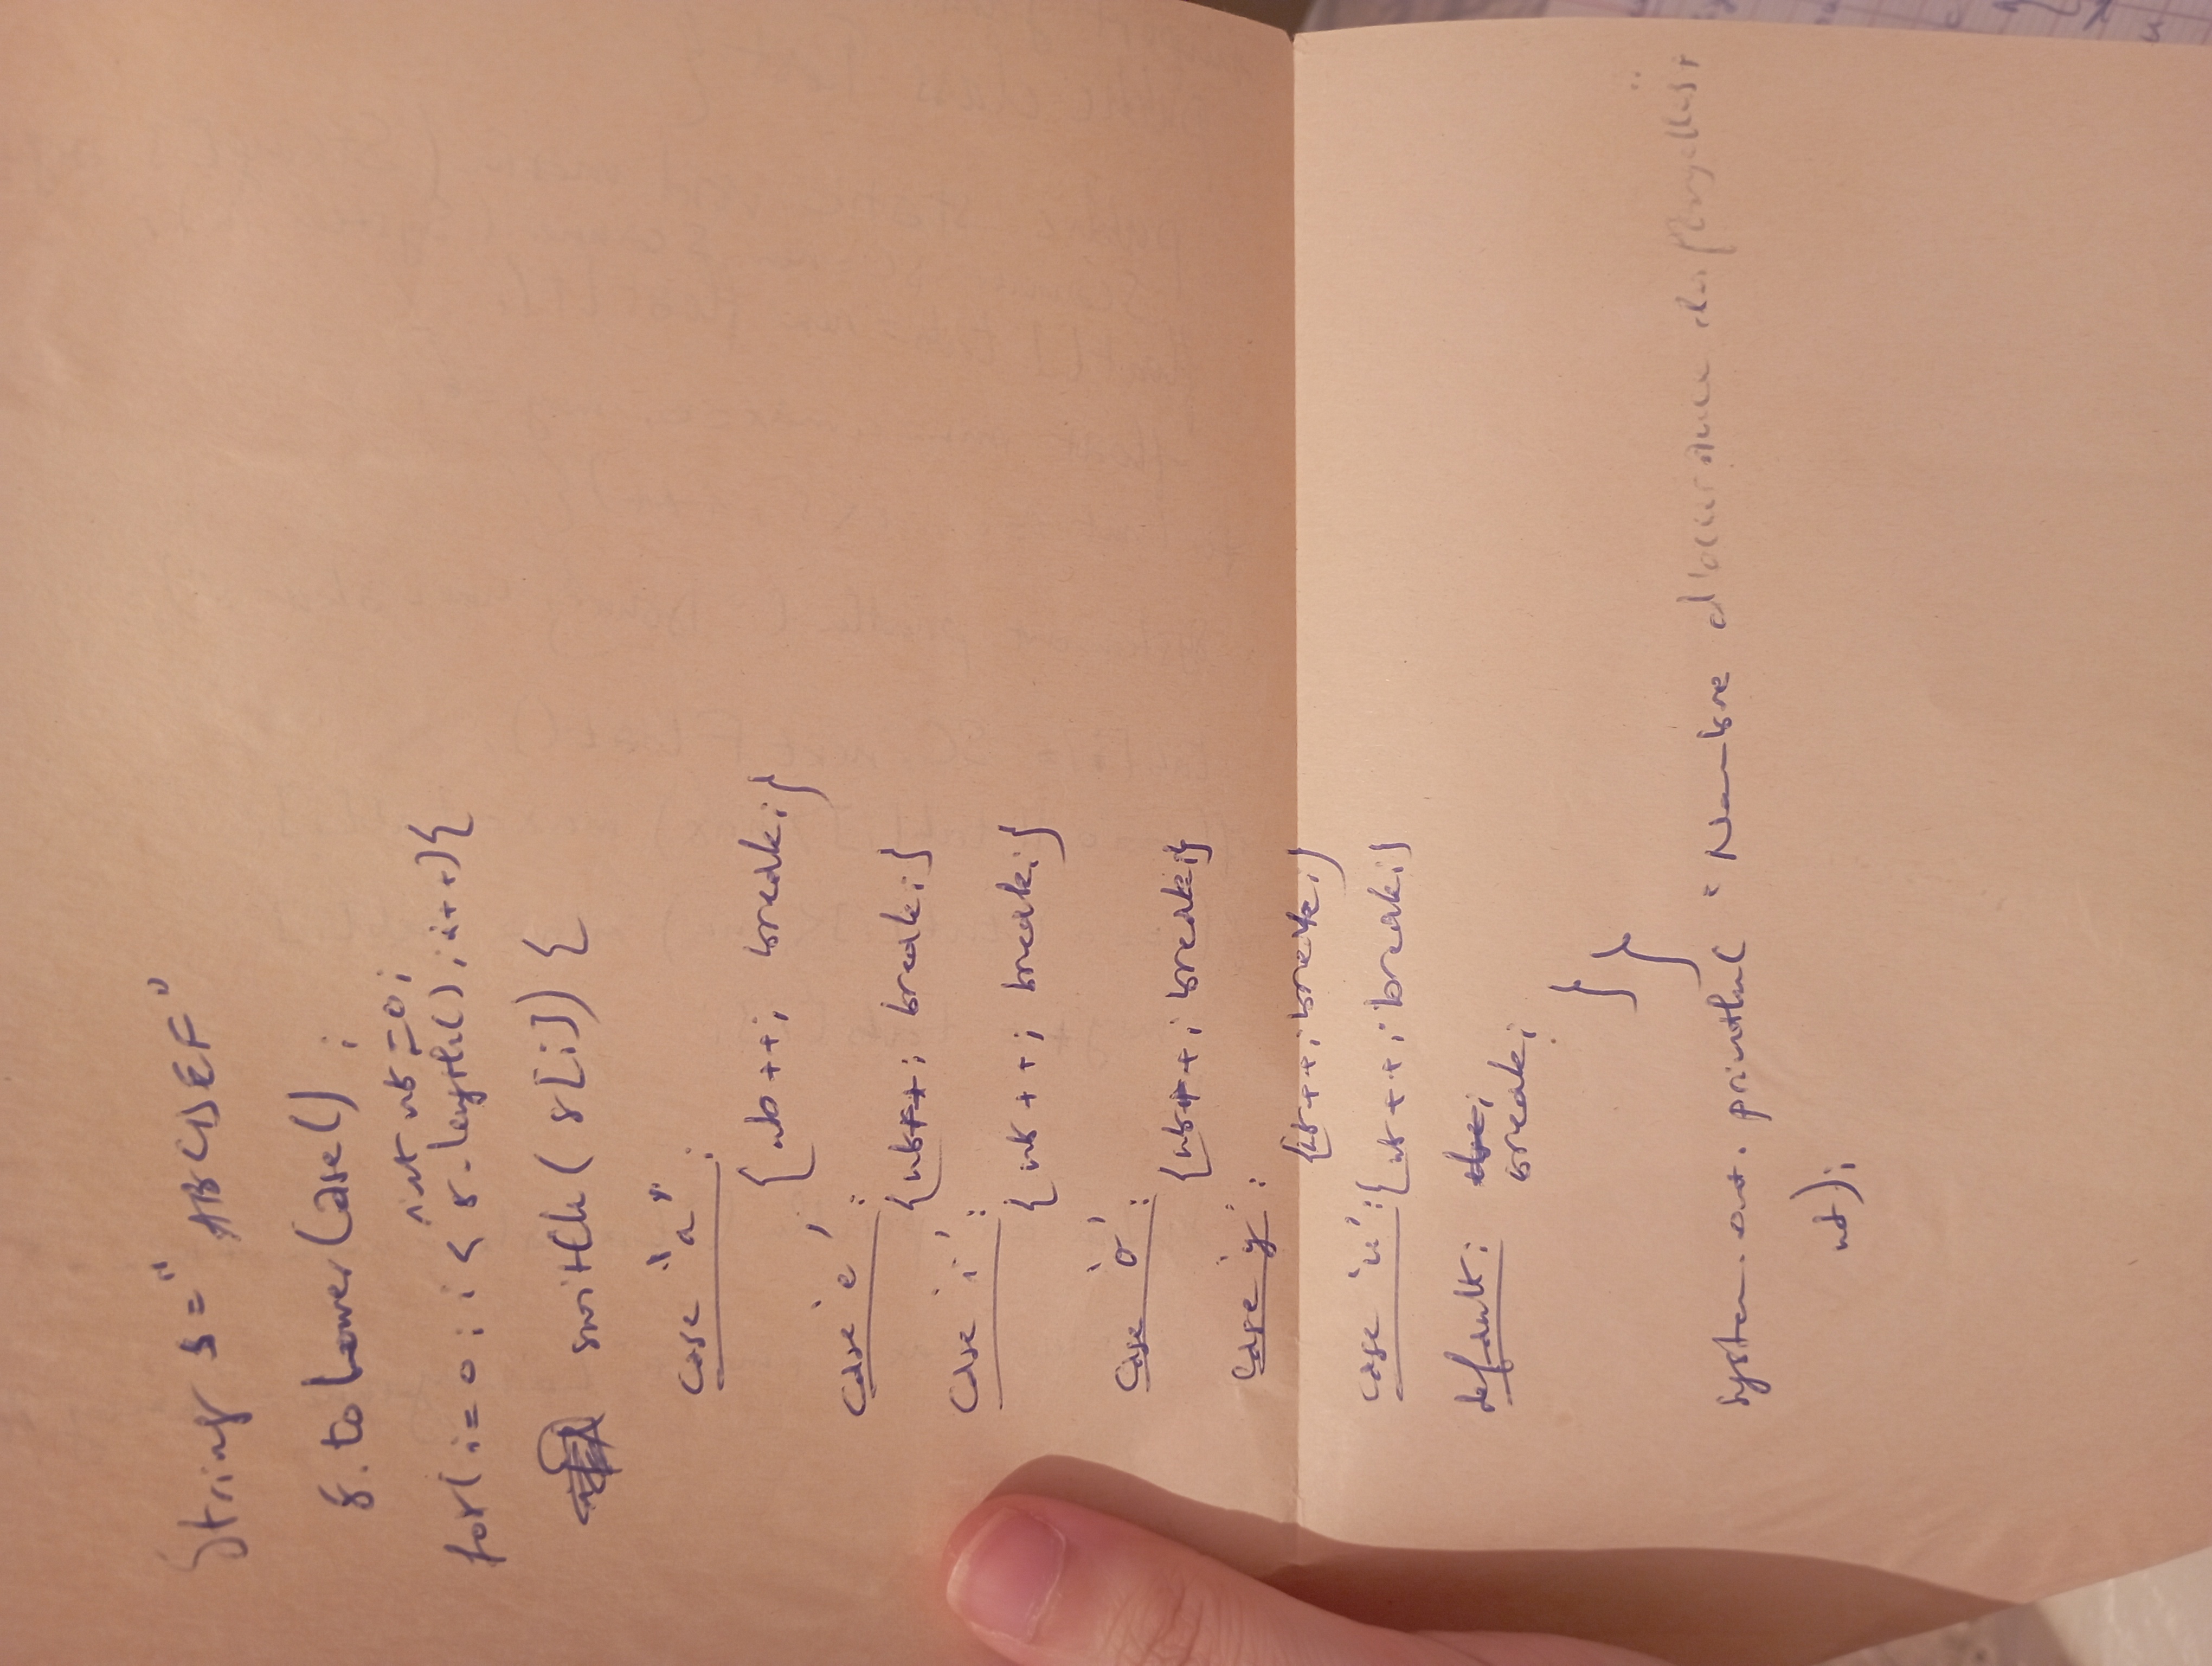 String s = "ABCDEF"
s.toLowerCase() ;
int nb = 0;
for( i = 0 ; i < s.length() ; i++){
switch( s[i]) {
case "a" :
{nb ++; break;}
case 'e' :
{nb++; break;}
case 'i' :
{ nb ++; break;}
case 'o' :
{nb++; break;}
case 'y' :
{nb++; break;}
case 'u' : {nb++; break;}
default :
break;
}
}
System.out.println( "Nombre d'occurence des
nb);